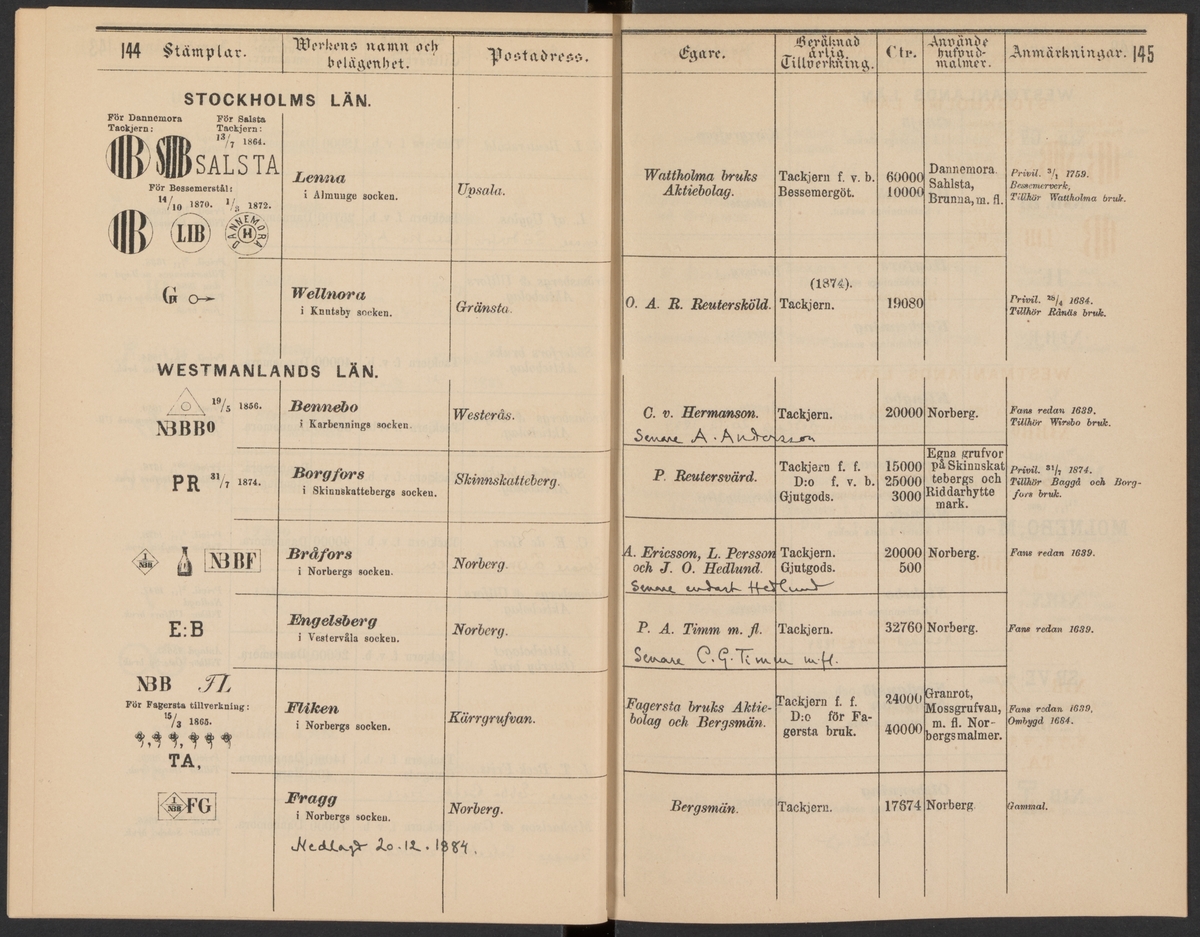 144 Stämplar.
Werkens namn och
belägenhet.
Postadress.
Egare.
Beräknad
årlig
Tillverkning.
Ctr.
Använde
hufvud-
malmer.
Anmärkningar. 145
STOCKHOLMS LÄN.
För Dannemora
Tackjern:
För Salsta
Tackjern:
13/7 1864.
SALSTA
För Bessemerstål:
14/10 1870. 1/3 1872.
LIB
DANNEMORA
H
Lenna
i Almunge socken.
Upsala.
Wattholma bruks
Aktiebolag.
Tackjern f. v. b.
Bessemergöt.
60000
10000
Dannemora
Sahlsta,
Brunna, m. fl.
Privil. 3/1 1759.
Bessemerverk,
Tillhör Wattholma bruk.
G
Wellnora
i Knutsby socken.
Gränsta.
O. A. R. Reutersköld.
(1874).
Tackjern.
19080
Privil. 28/4 1684.
Tillhör Rånäs bruk.
WESTMANLANDS LÄN.
19/5 1856.
NBBBO
Bennebo
i Karbennings socken.
Westerås.
C. v. Hermanson.
Senare A. Andersson
Tackjern.
20000
Norberg.
Fans redan 1639.
Tillhör Wirsbo bruk.
PR 31/7 1874.
Borgfors
i Skinnskattebergs socken.
Skinnskatteberg.
P. Reutersvärd.
Tackjern f. f.
D:o f. v. b.
Gjutgods.
15000
25000
3000
Egna grufvor
på Skinnskat
tebergs och
Riddarhytte
mark.
Privil. 31/7 1874.
Tillhör Baggå och Borg-
fors bruk.
1
NBB
NBBF
Bråfors
i Norbergs socken.
Norberg.
A. Ericsson, L. Persson
och J. O. Hedlund.
Senare endast Hedlund
Tackjern.
Gjutgods.
20000
500
Norberg.
Fans redan 1639.
E:B
Engelsberg
i Vestervåla socken.
Norberg.
P. A. Timm m. fl.
Senare C. G. Timm m.fl.
Tackjern.
32760
Norberg.
Fans redan 1639.
NBB TL
För Fagersta tillverkning:
15/3 1865.
TA,
Fliken
i Norbergs socken.
Kärrgrufvan.
Fagersta bruks Aktie-
bolag och Bergsmän.
Tackjern f. f.
D:o för Fa-
gersta bruk.
24000
40000
Granrot,
Mossgrufvan,
m. fl. Nor-
bergsmalmer.
Fans redan 1639,
Ombygd 1684.
1
NBB
FG
Fragg
i Norbergs socken.
Norberg.
Bergsmän.
Tackjern.
17674
Norberg
Gammal.
Nedlagd 20.12.1884.